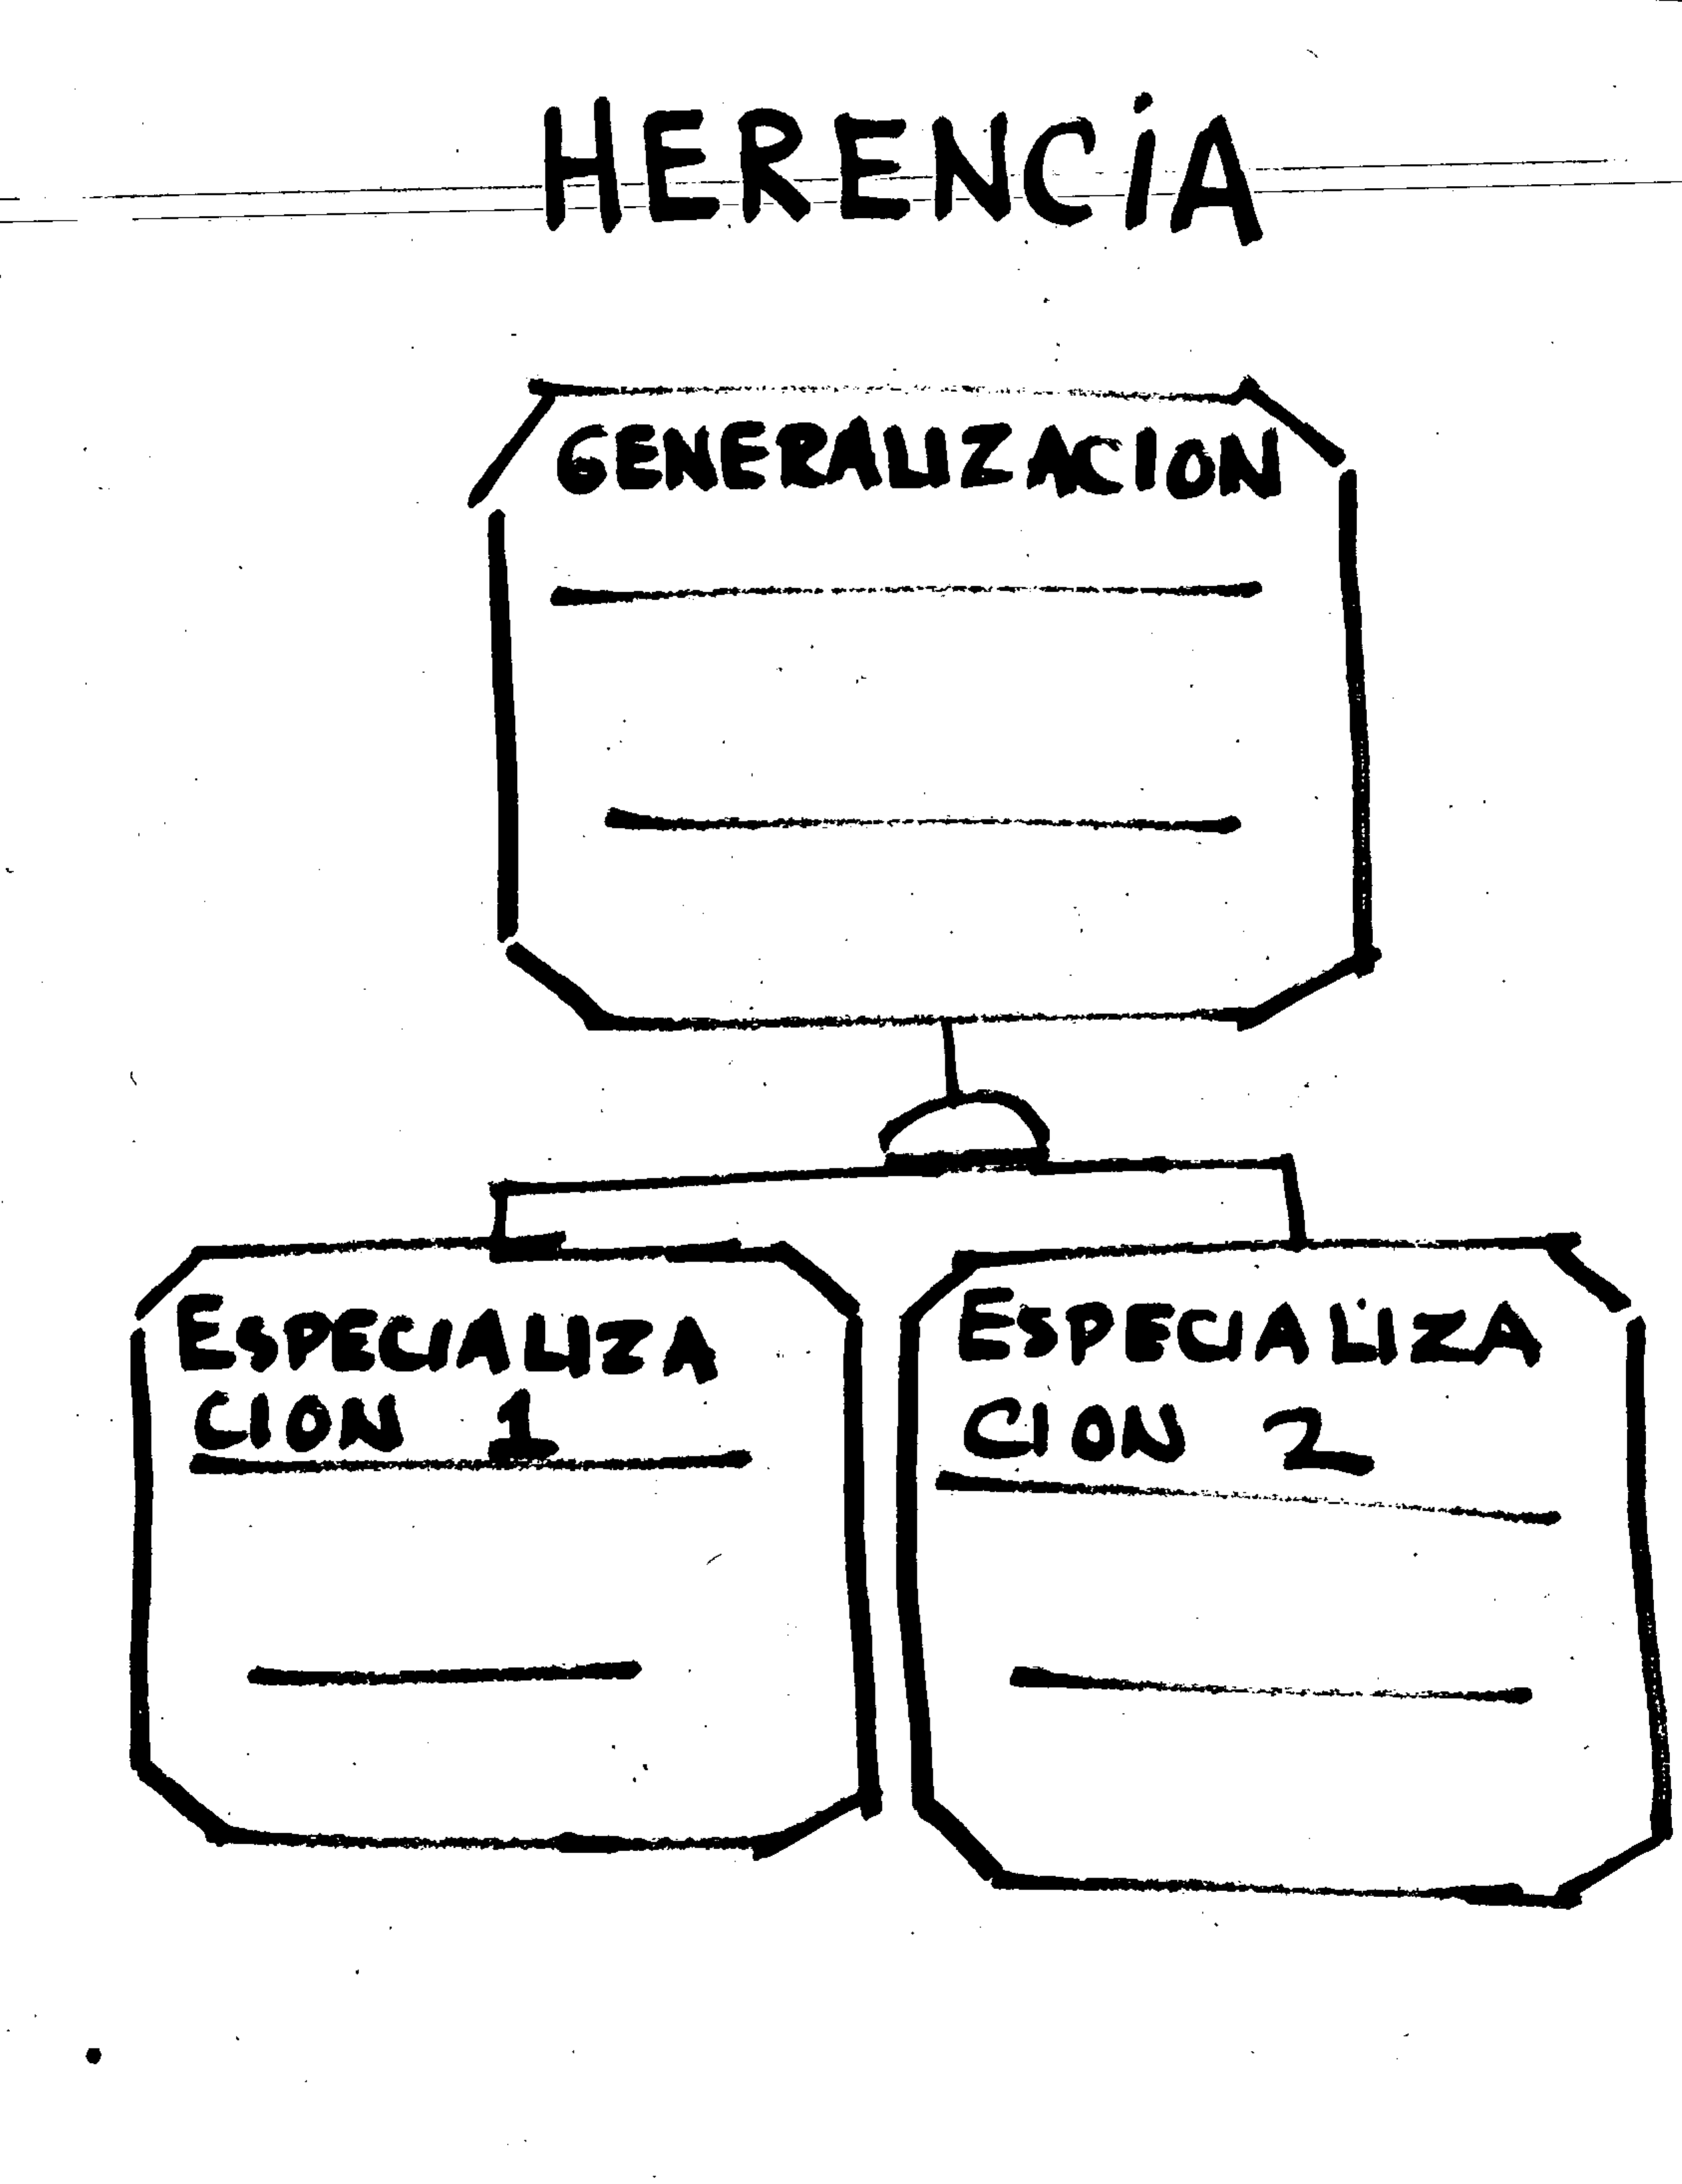 HERENCiA
GENERALIZACION
ESPECIALIZA
CION 1
ESPECIALIZA
CION 2